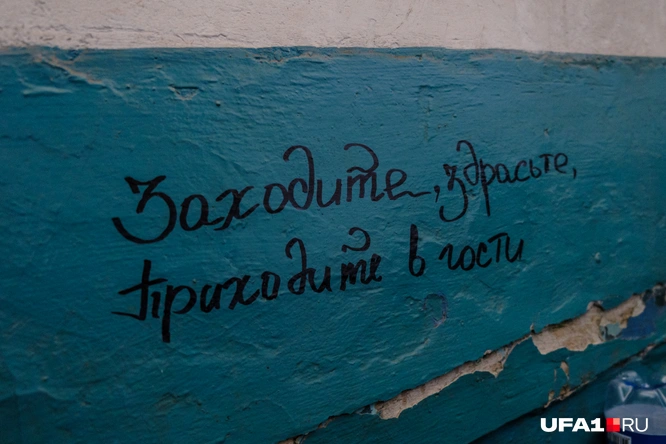 Заходите, здрасьте,
приходите в гости
UFA1.RU